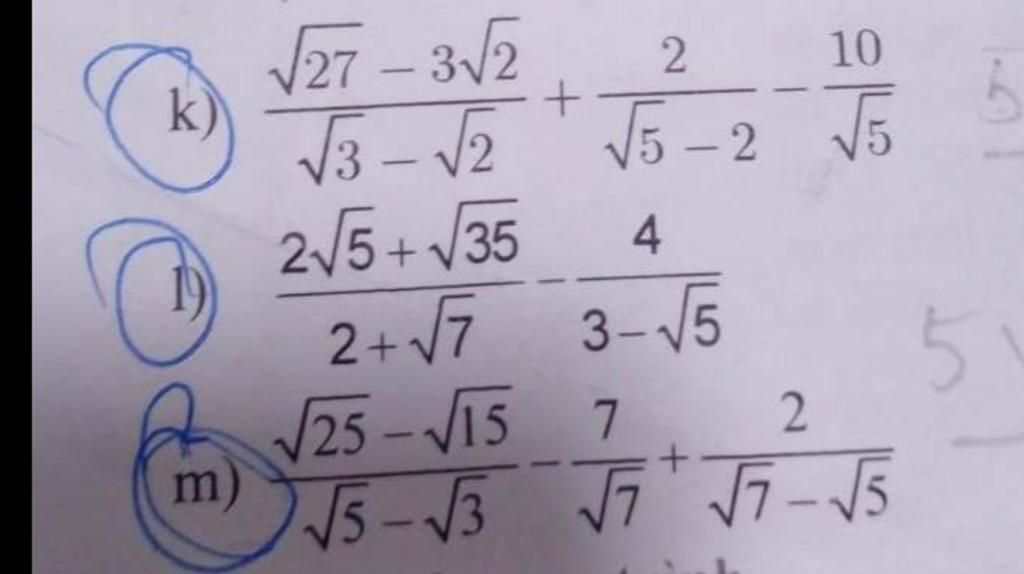 k) \frac{\sqrt{27} - 3\sqrt{2}}{\sqrt{3} - \sqrt{2}} + \frac{2}{\sqrt{5} - 2} - \frac{10}{\sqrt{5}}
l) \frac{2\sqrt{5} + \sqrt{35}}{2 + \sqrt{7}} - \frac{4}{3 - \sqrt{5}}
m) \frac{\sqrt{25} - \sqrt{15}}{\sqrt{5} - \sqrt{3}} - \frac{7}{\sqrt{7}} + \frac{2}{\sqrt{7} - \sqrt{5}}